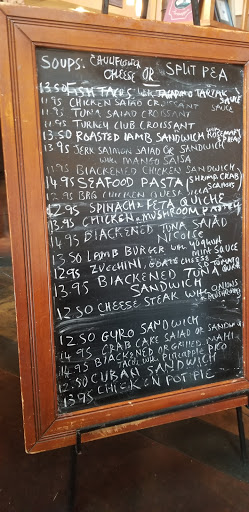 SOUPS: CAULIFLOWER
CHEESE OR SPLIT PEA
13.50 FISH TACOS with TARTAR SAUCE
11.95 CHICKEN SALAD CROISSANT
11.95 TUNA SALAD CROISSANT
11.95 TURKEY CLUB CROISSANT
13.50 ROASTED LAMB SANDWICH
13.95 JERK SALMON SALAD OR SANDWICH
with MANGO SALSA
11.95 BLACKENED CHICKEN SANDWICH
14.95 SEAFOOD PASTA (SHRIMP, CRAB, SCALLOPS)
12.95 BBQ CHICKEN CHEESE
12.95 SPINACH & FETA QUICHE
13.95 CHICKEN & MUSHROOM
14.95 BLACKENED TUNA SALAD
NICOISE
13.50 LAMB BURGER with YOGHURT
MINT SAUCE
12.95 ZUCCHINI, GOATS CHEESE TOMATO QUICHE
13.95 BLACKENED TUNA
SANDWICH
12.50 CHEESE STEAK with ONIONS
& MUSHROOMS
12.50 GYRO SANDWICH
14.95 CRAB CAKE SALAD OR SANDWICH
14.95 BLACKENED OR GRILLED MAHI
TACOS with PINEAPPLE PICO
12.50 CUBAN SANDWICH
13.95 CHICKEN POT PIE